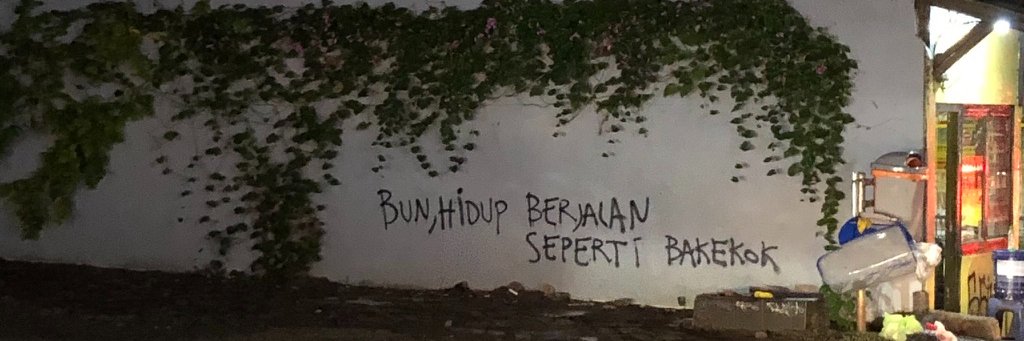 BUN,HIDUP BERJALAN
SEPERTI BAKEKOK